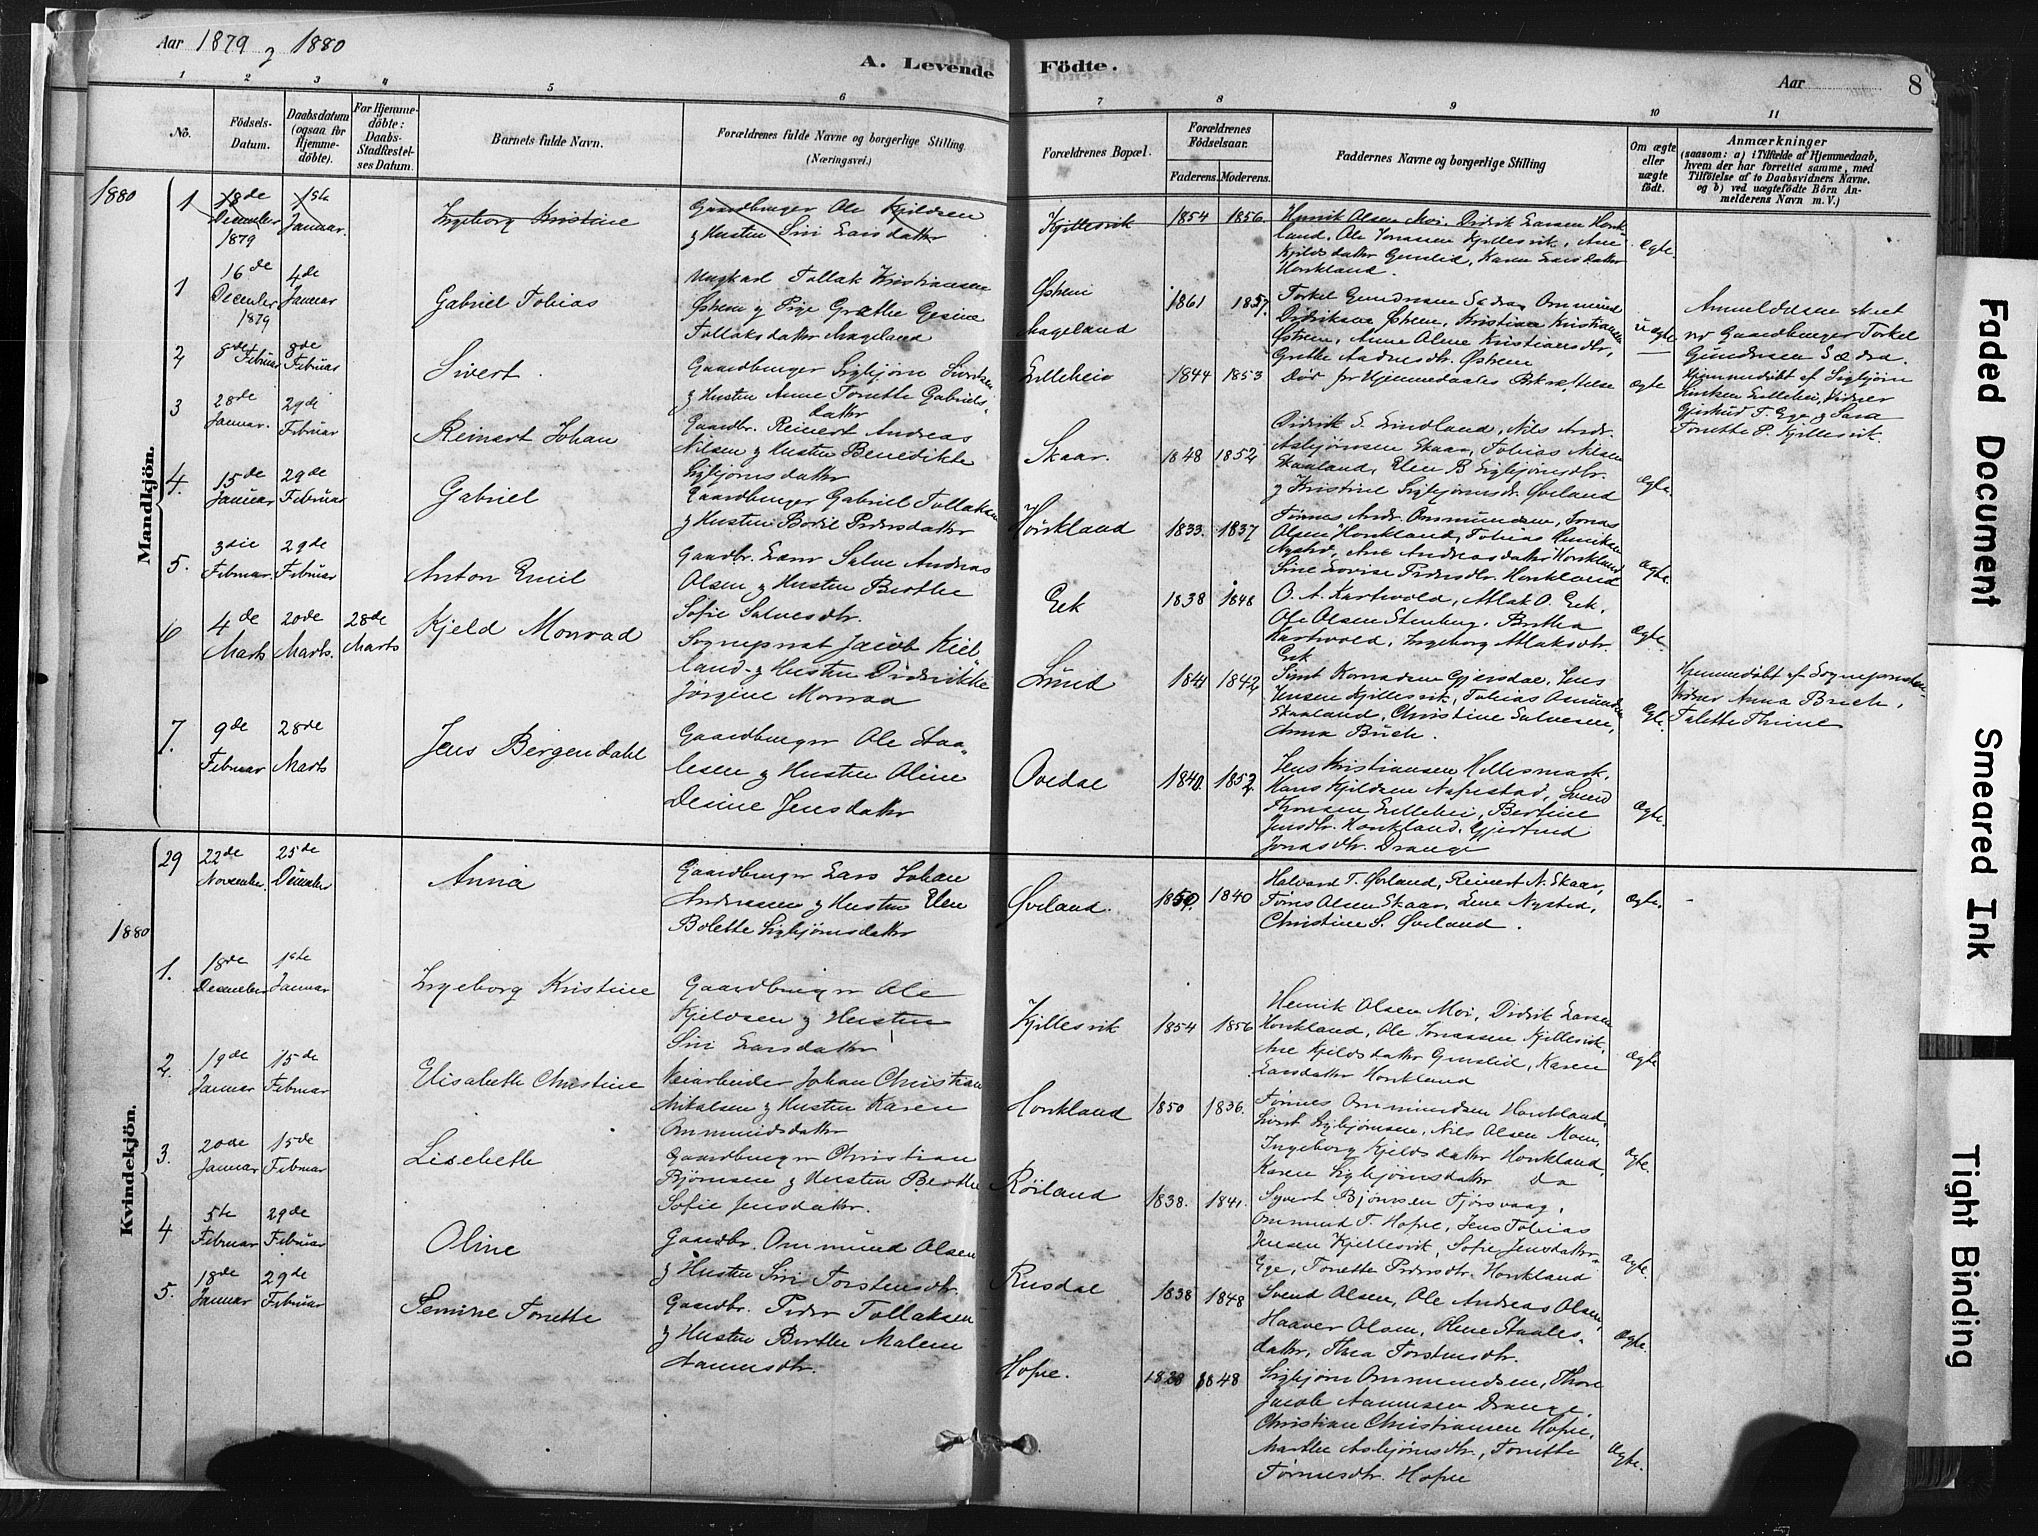 Aar 1879 og 1880
A. Levende Födte.
Aar
8
1 2 3 4 5 6 7 8 9 10 11
No.
Födsels-Datum.
Daabsdatum (ogsaa for Hjemmedöbte).
For Hjemmedöbte: Daabs-Stadfæstelses Datum.
Barnets fulde Navn.
Forældrenes fulde Navne og borgerlige Stilling (Næringsvei.)
Forældrenes Bopæl.
Forældrenes Födselsaar.
Faderens. Moderens.
Faddernes Navne og borgerlige Stilling
Om ægte eller uægte födt.
Anmærkninger
(saasom: a) i Tilfælde af Hjemmedaab,
hvem der har forrettet samme, med
Tilföielse af to Daabsvidners Navne.
og b) ved uægtefödte Börn Anmelderens Navn m. V.)
Mandkjön.
1880
1 18de December 1879
1ste Januar.
Ingeborg Kristine
Gaardbruger Ole Kjeldsen
og Hustru Siri Larsdatter
Kjellesvik 1854 1856.
Henrik Olsen Moi, Didrik Larsen Honkland,
Ole Jonassen Kjellesvik, Ane
Kjeldsdatter Gursl​id, Karen Larsdatter
Honkland.
Ægte.
1 16de December 1879
4de Januar
Gabriel Tobias
Ungkarl Tollak Kristiansen
Østrem og Pige Grethe Gesine
Tollaksdatter Mageland
Østrem
Mageland
1861 1857.
Torkel Gundersen Sædra, Ommund
Didriksen Østrem, Kristian Kristiansen
Østrem, Anne Oline Kristiansdtr,
Grethe Aadnesdtr. Østrem
uægte
Anmeldelsen skeet
ved Gaardbruger Torkel
Gundersen Sædra.
2 8de Februar
8de Februar
Sivert.
Gaardbruger Sigbjørn Sivertsen
og Hustru Anne Tonette Gabrielsdatter
Lilleheie 1844 1853
Død før Hjemmedaabens Bekræftelse
Ægte
Hjemmedøbt af Sigbjørn
Sivertsen Lilleheie, Vidner
Gjertrud T. Ege og Sara
Tonette P. Kjellesvik.
3 28de Januar.
29de Februar
Reinert Johan
Gaardbr. Reinert Andreas
Nilsen og Hustru Benedikte
Sigbjørnsdatter
Skaar. 1848 1852
Didrik S. Lindland, Nils Andr.
Asbjørnsen Skaar, Tobias Nilsen
Skaaland, Elen B. Sigbjørnsdtr.
og Kristine Sigbjørnsdr. Øveland
Ægte.
4. 15de Januar
29de Februar
Gabriel
Gaardbruger Gabriel Tollaksen
og Hustru Bodil Pedersdatter
Honkland 1833. 1837
Tønnes Andr. Ommundsen, Jonas
Olsen Honkland, Tobias Henriksen
Nysted, Ane Andreasdatter Honkland
Sine Lovise Pedersdtr. Honkland
Ægte.
5. 3die Februar.
29de Februar
Anton Emil
Gaardbr. Lænsm. Salve Andreas
Olsen og Hustru Berthe
Sofie Salvesdtr.
Eek 1838 1848
O. A. Kartvold, Atlak O. Eek,
Ole Olsen Stenberg, Britha
Kartvold, Ingeborg Atlaksdtr
Eek
Ægte.
6 4de Marts
20de Marts.
28de Marts
Kjeld Monrad
Sogneprest Jacob Kielland
og Hustru Didrikke
Jørgine Monrad
Lund 1841 1842
Simt Konraden Gjersdal, Jens
Jensen Kjellesvik, Tobias Omundsen
Skaaland, Christine Salvesen,
Anna Bruch.
Ægte.
Hjemmedøbt af Sognepresten.
Vidner Anna Bruch,
Talette Thime
7. 9de Februar
28de Marts
Jens Bergendahl
Gaardbruger Ole Staalesen
og Hustru Oline
Desine Jensdatter
Ovedal 1840. 1852.
Jens Kristiansen Hellesmark,
Hans Kjeldsen Napestad, Svend
Thorsen Lilleheie, Bertine
Jensdtr. Honkland, Gjertrud
Jonasdtr. Drange
Ægte.
Kvindekjön.
29 22de November.
25de December
Anna
Gaardbruger Lars Johan
Andreassen og Hustru Elen
Bolette Sigbjørnsdatter
Øveland. 1850. 1840
Halvard T. Øveland, Reinert N. Skaar,
Tønnes Olsen Skaar, Lene Nysted,
Christine S. Øveland.
Ægte.
1880
1. 18de December
1ste Januar
Ingeborg Kristine
Gaardbruger Ole
Kjeldsen og Hustru
Siri Larsdatter
Kjellesvik 1854 1856
Henrik Olsen Moi, Didrik Larsen
Honkland, Ole Jonassen Kjellesvik,
Ane Kjeldsdatter Gurslid, Karen
Larsdatter Honkland
Ægte
2. 19de Januar
15de Februar
Elisabeth Christine
Veiarbeider Johan Christian
Nikolsen og Hustru Karen
Ommundsdatter
Honkland 1850 1836.
Tønnes Ommundsen Honkland,
Sivert Sigbjørnsen, Nils Olsen Moen,
Ingeborg Kjeldsdatter Honkland,
Karen Sigbjørnsdatter Do
Ægte.
3. 20de Januar
15de Februar
Lisebeth
Gaardbruger Christian
Bjørnsen og Hustru Berthe
Sofie Jensdatter.
Røiland 1838. 1841.
Syvert Bjørnsen Fjørsvaag,
Ommund T. Hofve, Jens Tobias
Jensen Kjellesvik, Sofie Jensdatter
Ege, Tonette Pedersdtr. Honkland
Ægte.
4 5te Februar
29de Februar
Oline
Gaardbr. Ommund Olsen
og Hustru Siri Torstensdtr.
Rusdal 1838 1848
Svend Olsen, Ole Andreas Olsen,
Haaver Olsen, Oline Staalesdatter,
Thea Torstensdtr.
Ægte.
5. 18de Januar
29de Februar
Semine Tonette
Gaardbr. Peder Tollaksen
og Hustru Berthe Malene
Aanensdtr.
Hofve. 1838 1848
Sigbjørn Ommundsen, Thore
Jacob Aanensen Drange,
Christian Christiansen Hofve,
Marthe Asbjørnsdtr, Tonette
Tønnesdtr. Hofve
Ægte.
Faded Document
Smeared Ink
Tight Binding